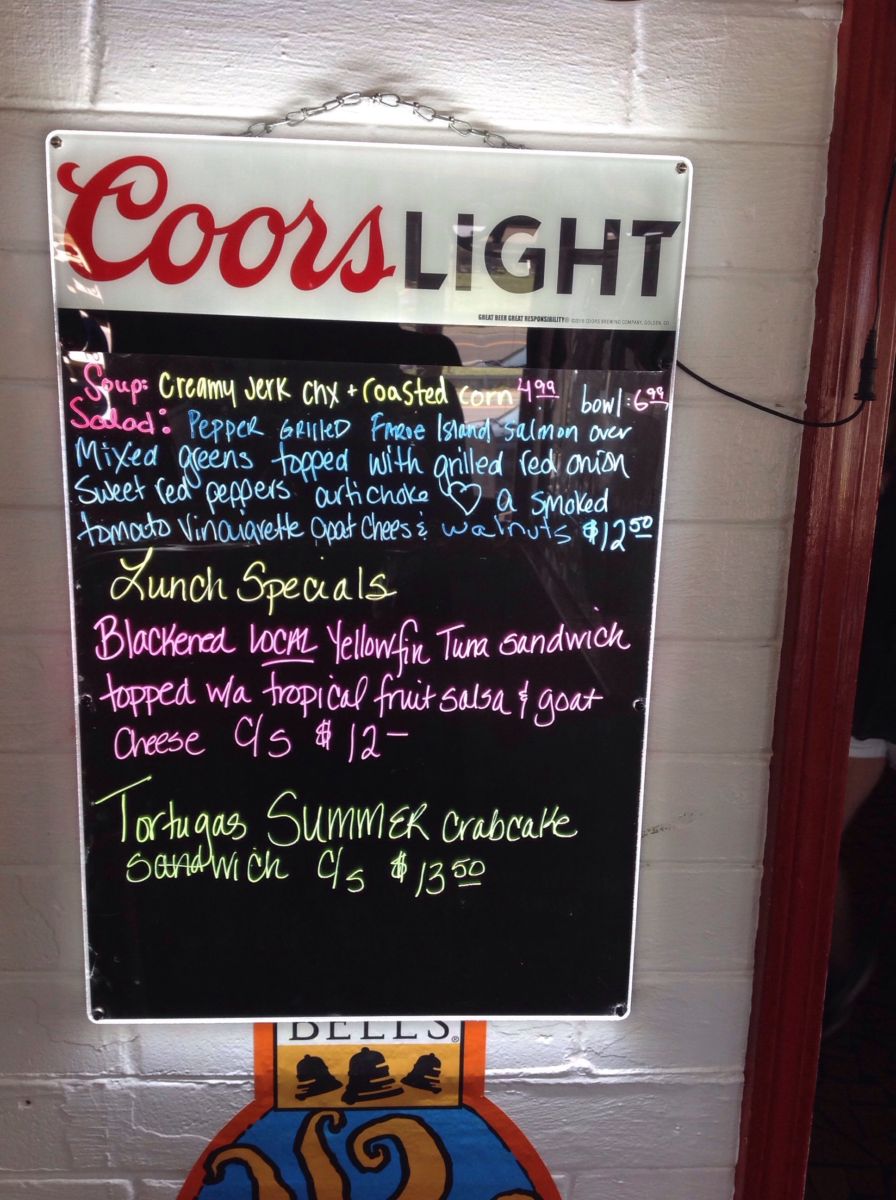 Coors LIGHT
GREAT BEER GREAT RESPONSIBILITY® ©2016 COORS BREWING COMPANY, GOLDEN, CO
Soup: Creamy Jerk chx + roasted corn 4.99 bowl: 6.99
Salad: Pepper Grilled Faroe Island salmon over
Mixed greens topped with grilled red onion
Sweet red peppers artichoke ♡ a smoked
tomato Vinaigrette goat chees & walnuts $12.50
Lunch Specials
Blackened LOCAL Yellowfin Tuna sandwich
topped w/a tropical fruit salsa & goat
Cheese C/S $12-
Tortugas SUMMER crabcake
sandwich C/S $13.50
BELL'S®